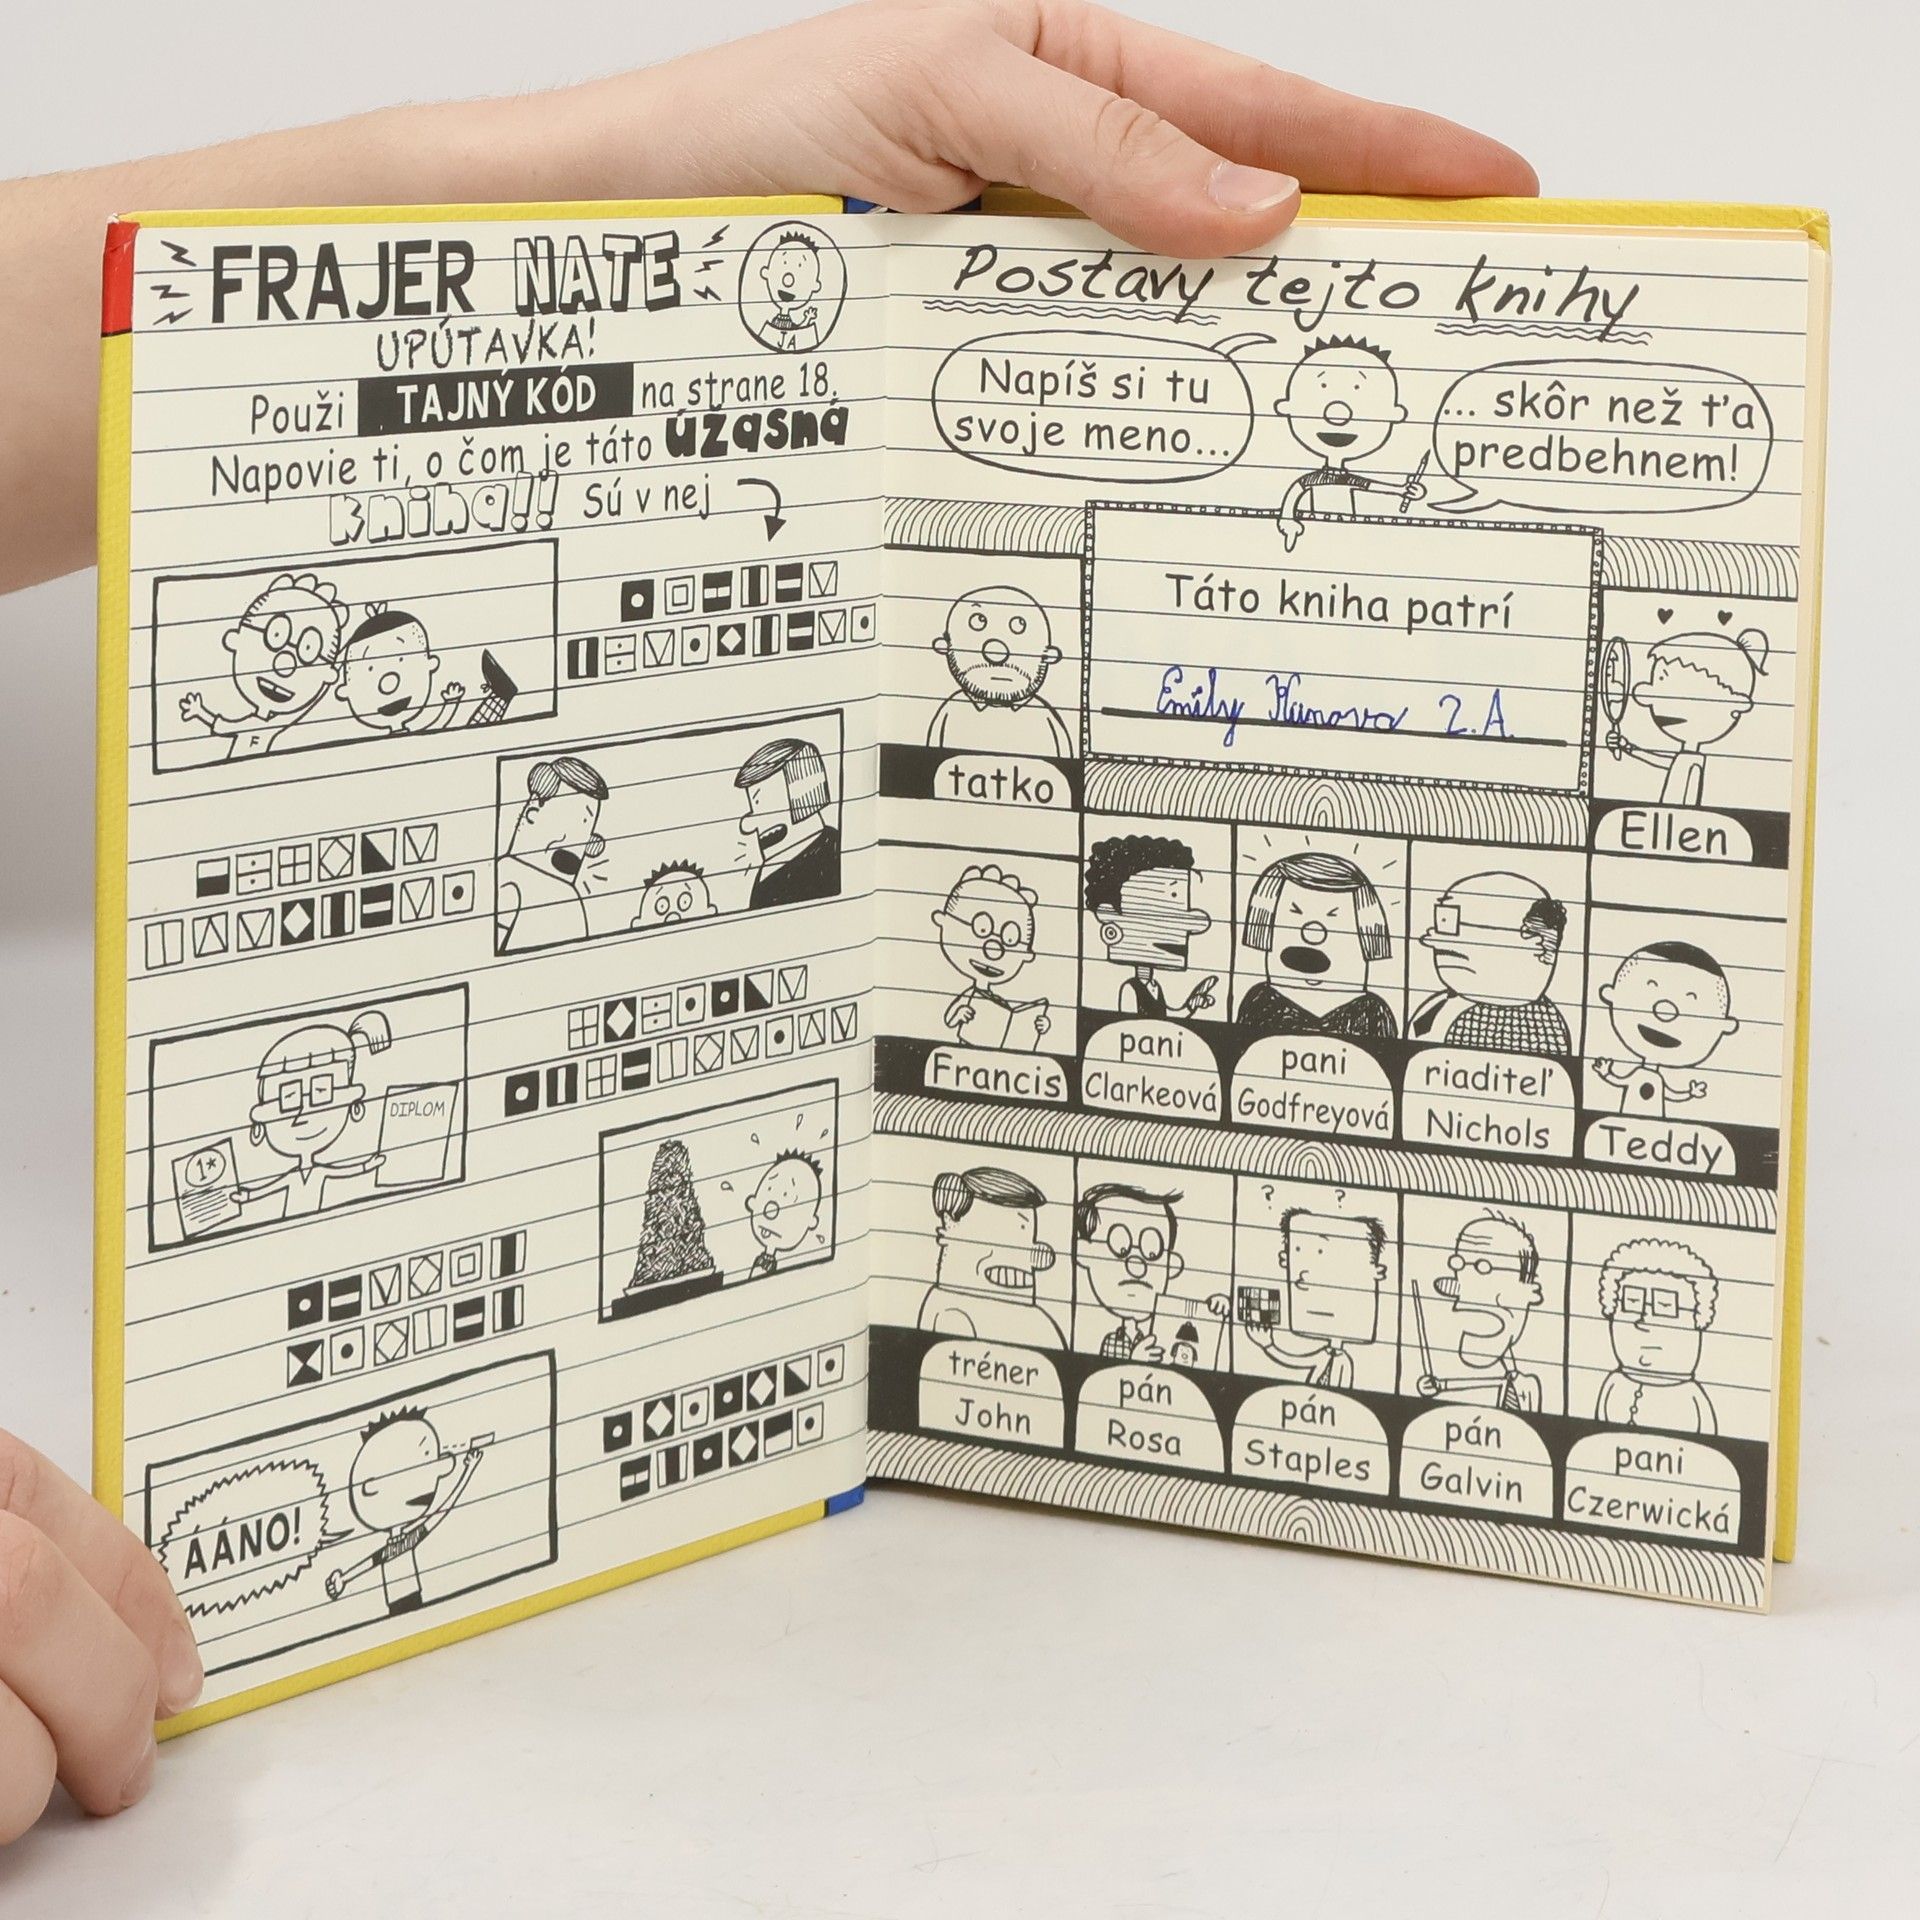 FRAJER NATE
JA
UPÚTAVKA!
Použi TAJNÝ KÓD na strane 18.
Napovie ti, o čom je táto úžasná
kniha!! Sú v nej
F
1*
DIPLOM
ÁÁNO!
Postavy tejto knihy
Napíš si tu
svoje meno...
... skôr než ťa
predbehnem!
Táto kniha patrí
Emily 2.A.
tatko
Ellen
Francis
pani
Clarkeová
pani
Godfreyová
riaditeľ
Nichols
Teddy
? ?
tréner
John
pán
Rosa
pán
Staples
pán
Galvin
pani
Czerwická